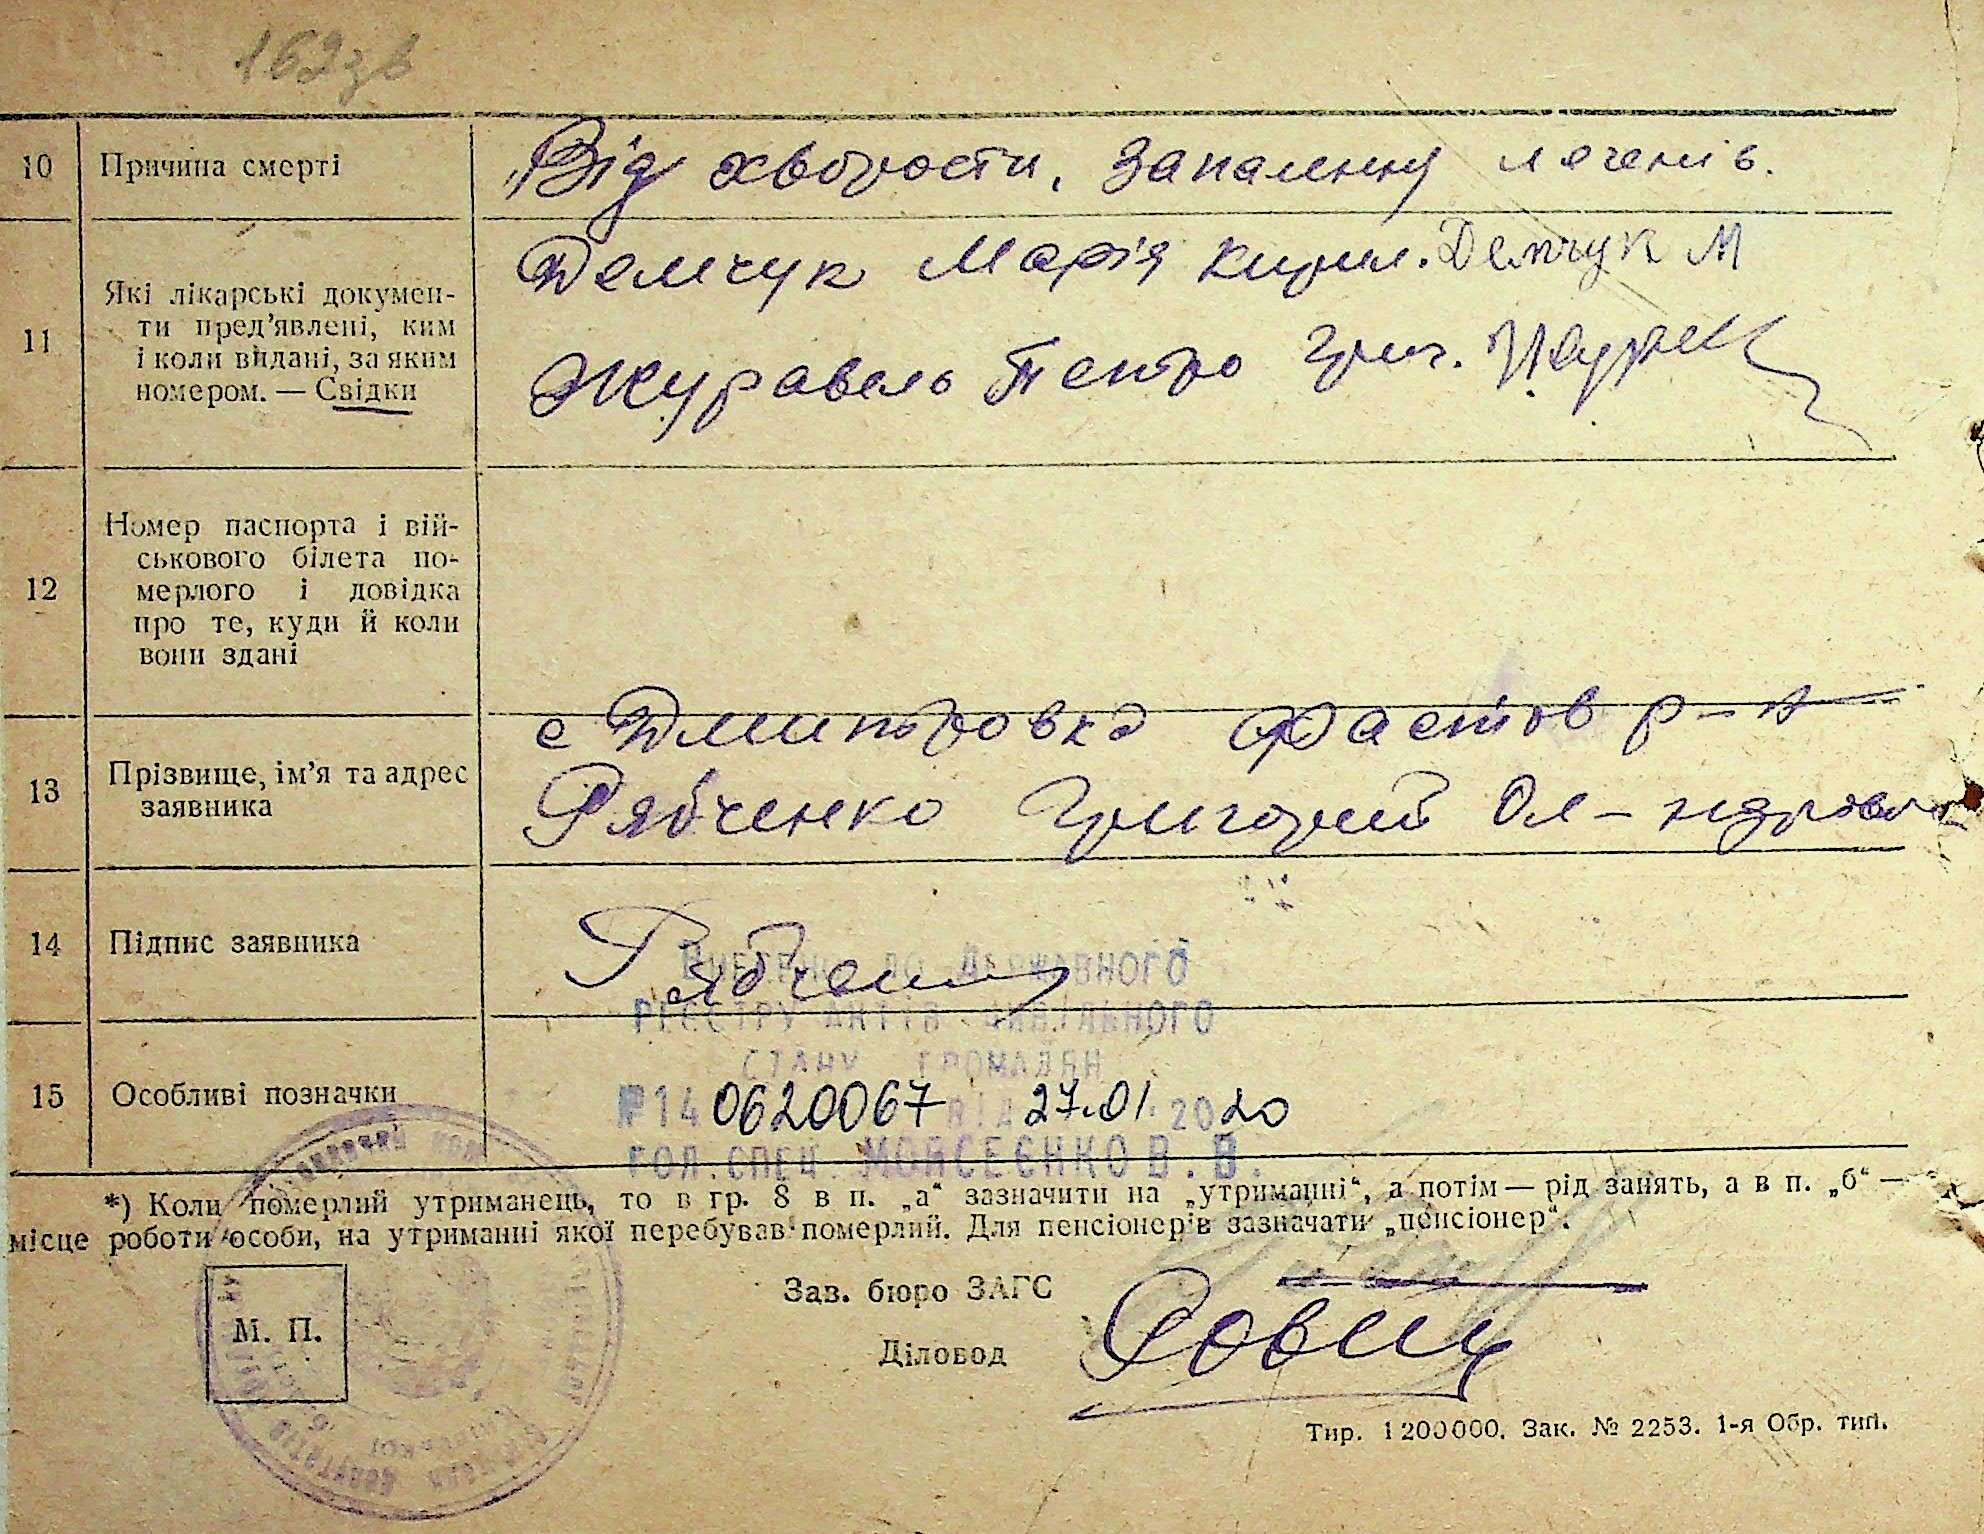 162зв
10 Причина смерті Від хворости, Запаленну легенів.
11 Які лікарські докумен-
ти пред'явлені, ким
і коли видані, за яким
номером. — Свідки
Демчук Марія Кирил. Демчук М
Журавель Петро Григ.
12 Номер паспорта і вій-
ськового білета по-
мерлого і довідка
про те, куди й коли
вони здані
13 Прізвище, ім'я та адрес
заявника
с Дмитровка Фастов р-н
Рябченко Григорий Ол-ндрович
14 Підпис заявника Рябченко
15 Особливі позначки
Внесено до Державного
реєстру актів цивільного
стану громадян
№14 0620067 від 27.01.2020
гол.спец Моисеєнко В.В.
*) Коли померлий утриманець, то в гр. 8 в п. „а“ зазначити на „утриманні“, а потім — рід занять, а в п. „б“ —
місце роботи особи, на утриманні якої перебував померлий. Для пенсіонерів зазначати „пенсіонер“.
Зав. бюро ЗАГС
М. П.
Діловод
Тир. 1200000. Зак. № 2253. 1-я Обр. тип.